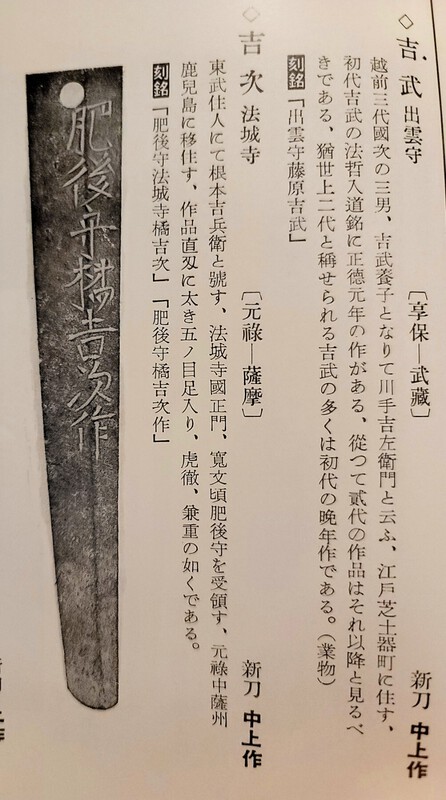 ◇吉武 出雲守 〔享保―武藏〕 新刀 中上作
越前三代國次の三男、吉武養子となりて川手吉左衛門と云ふ、江戸芝土器町に住す、
初代吉武の法哲入道銘に正德元年の作がある、從つて貳代の作品はそれ以降と見るべ
きである、猶世上二代と稱せられる吉武の多くは初代の晩年作である。(業物)
刻銘「出雲守藤原吉武」
◇吉次 法城寺 〔元祿―薩摩〕 新刀 中上作
東武住人にて根本吉兵衛と號す、法城寺國正門、寛文頃肥後守を受領す、元祿中薩州
鹿兒島に移住す、作品直刄に太き五ノ目足入り、虎徹、兼重の如くである。
刻銘「肥後守法城寺橘吉次」「肥後守橘吉次作」
肥後守橘吉次作